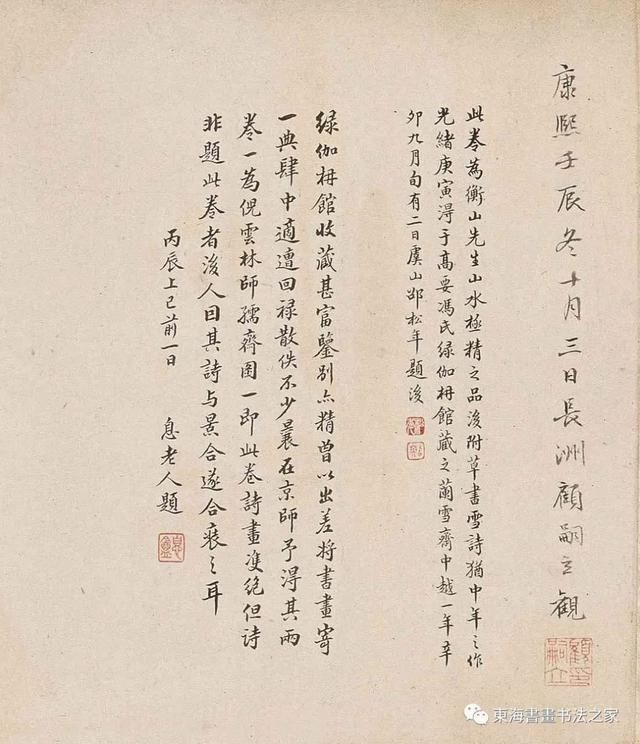 康熙壬辰冬十月三日長洲顧嗣立觀
顧嗣立印
此卷為衡山先生山水極精之品後附草書雪詩猶中年之作
光緒庚寅得于高要馮氏綠伽枏館藏之蘭雪齋中越一年辛
卯九月旬有二日虞山邵松年題後
綠伽枏館收藏甚富鑒別亦精曾以出差將書畫寄
一典肆中適遭回祿散佚不少曩在京師予得其兩
卷一為倪雲林師孺齋圖一即此卷詩畫雙絕但詩
非題此卷者後人因其詩与景合遂合裝之耳
丙辰上巳前一日
息老人題
東海書畫书法之家